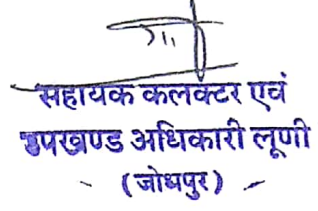 सहायक कलक्टर एवं
उपखण्ड अधिकारी लूणी
(जोधपुर)